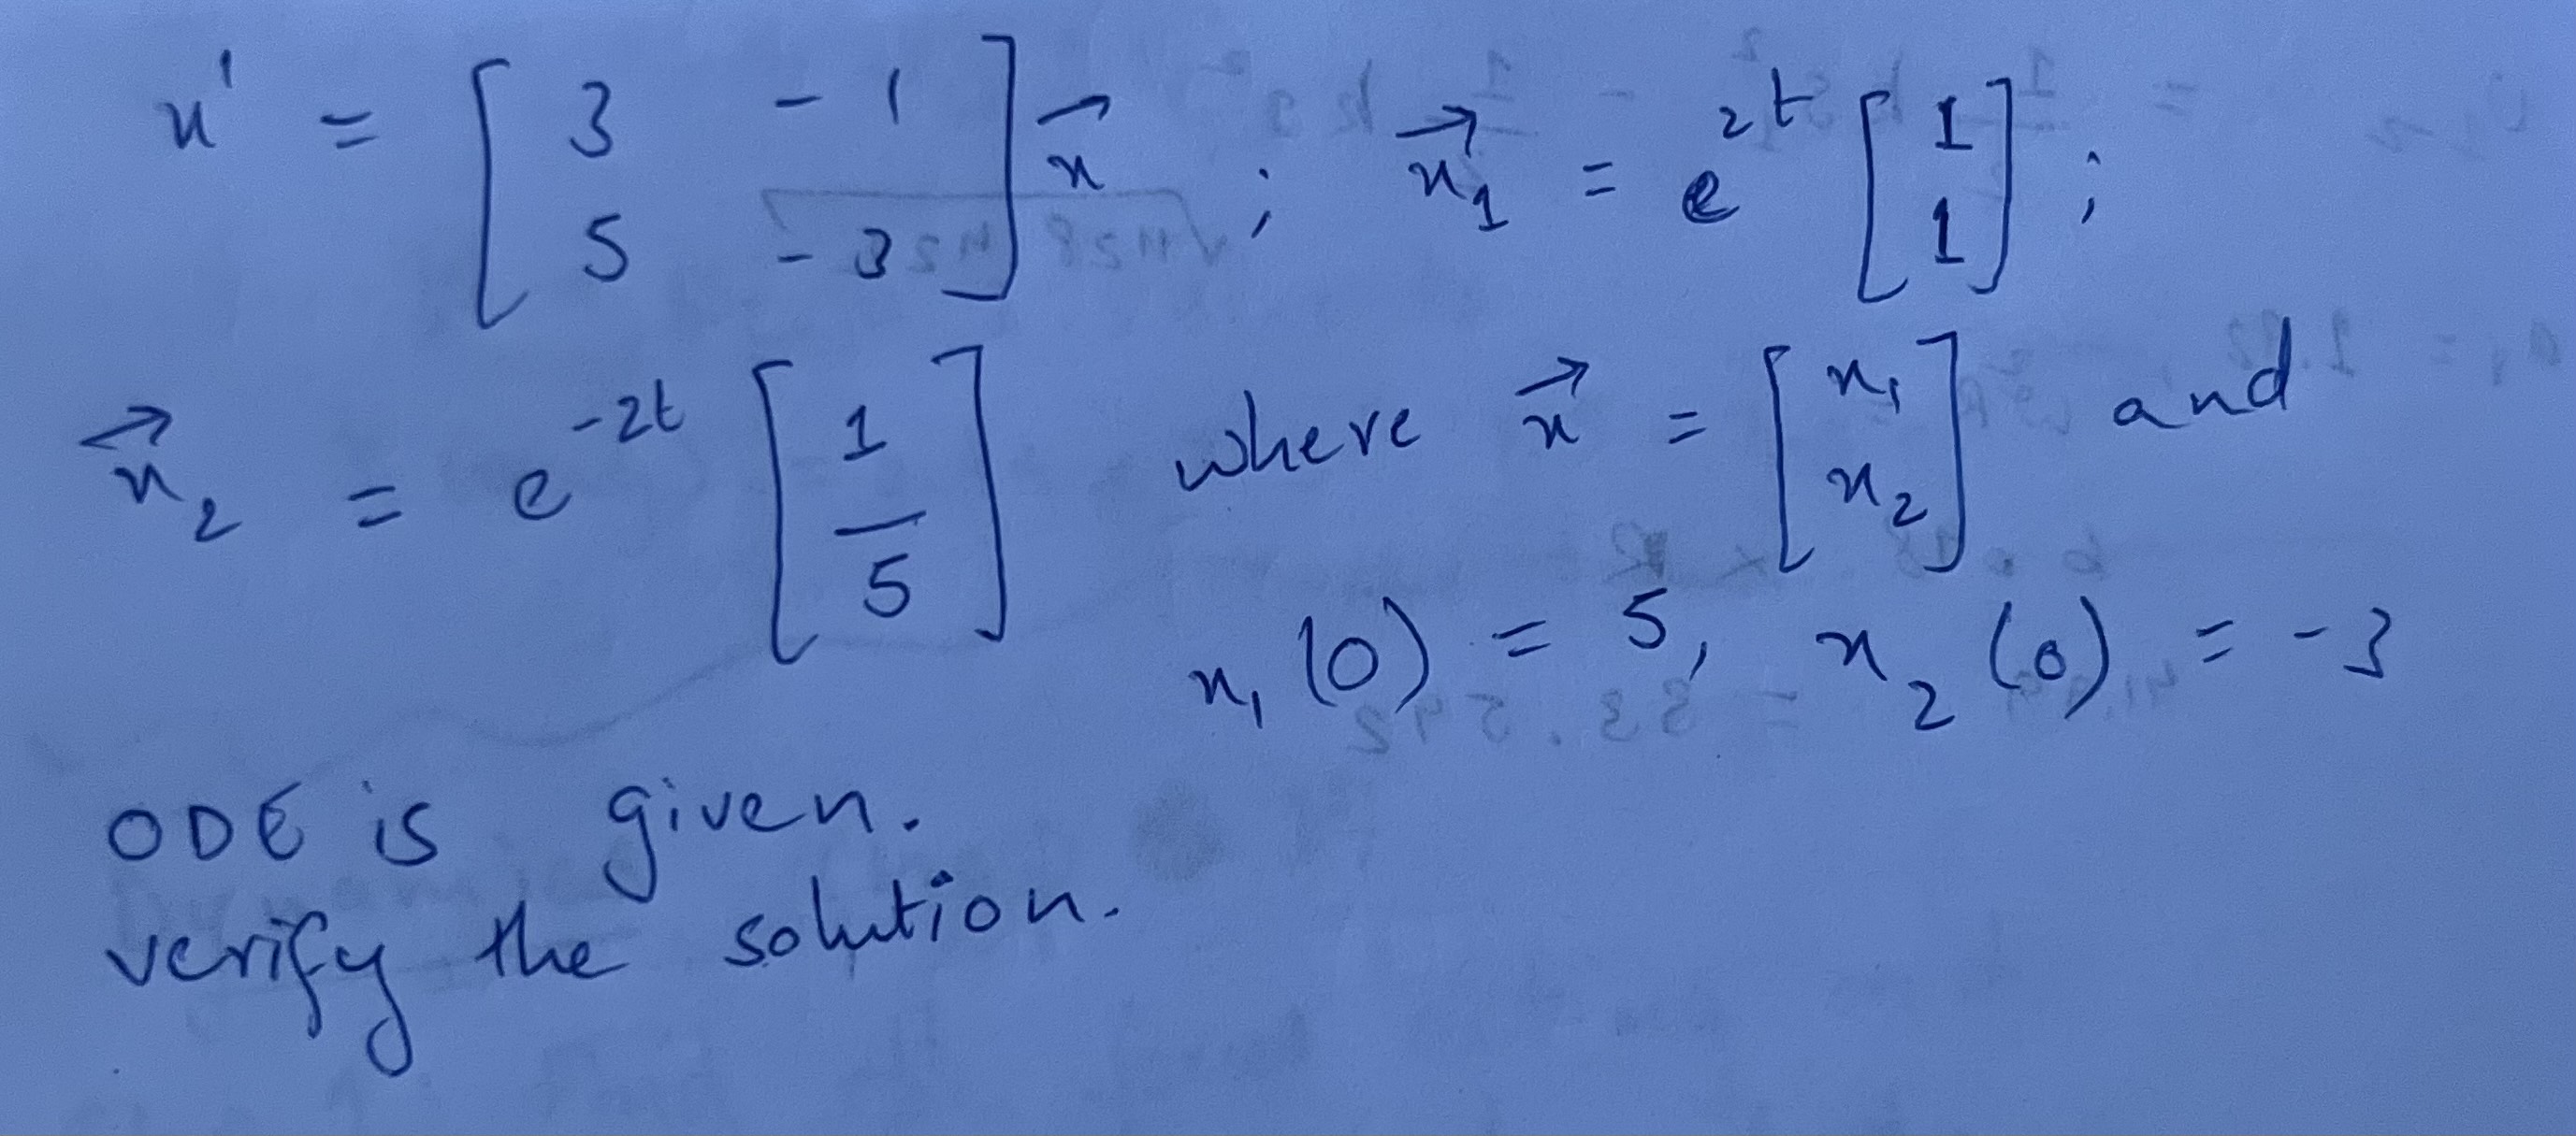 x' = [ 3 -1 ; 5 -3 ] x⃗ ; x⃗₁ = e^{2t} [ 1 ; 1 ] ;
x⃗₂ = e^{-2t} [ 1/5 ] where x⃗ = [ x₁ ; x₂ ] and
x₁(0) = 5, x₂(0) = -3
ODE is given.
verify the solution.